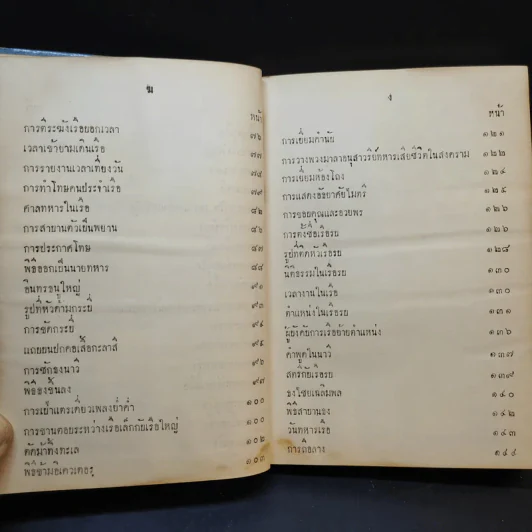 ฆ
หน้า
การตีระฆังเรือบอกเวลา ๗๒
เวลาเข้ายามเดินเรือ ๗๗
การรายงานเวลาเที่ยงวัน ๗๘
การทำโทษคนประจำเรือ ๗๙
ศาลทหารในเรือ ๘๒
การสาบานตัวเป็นพยาน ๘๖
การประกาศโทษ ๘๗
พิธีออกเป็นนายทหาร ๘๘
อินทรธนูใหญ่ ๙๑
รูปที่หัวด้ามกระบี่ ๙๓
การชักกระบี่ ๙๔
แถบบนปกคอเสื้อกะลาสี ๙๕
การชักธงนาวี ๙๖
พิธีธงขึ้นลง ๙๗
การเป่าแตรเดี่ยวเพลงย่ำค่ำ ๑๐๐
การขานตอบระหว่างเรือเล็กกับเรือใหญ่ ๑๐๐
ตัดม้าดึงทะเล ๑๐๒
พิธีข้ามอีเควเตอร์ ๑๐๓
ง
หน้า
การเยี่ยมคำนับ ๑๒๑
การวางพวงมาลาอนุสาวรีย์ทหารเสียชีวิตในสงคราม ๑๒๒
การเยี่ยมห้องโถง ๑๒๔
การแสดงอัธยาศัยไมตรี ๑๒๕
การขอบคุณและอวยพร ๑๒๖
การตั้งชื่อเรือรบ ๑๒๖
รูปที่ติดหัวเรือรบ ๑๒๘
นิติธรรมในเรือรบ ๑๓๐
เวลางานในเรือ ๑๓๐
ตำแหน่งในเรือรบ ๑๓๑
ผู้บังคับการเรือย้ายตำแหน่ง ๑๓๖
คำพูดในนาวี ๑๓๗
สตรีกับเรือรบ ๑๓๙
ธงไชยเฉลิมพล ๑๔๐
พิธีสาบานธง ๑๔๒
วันทหารเรือ ๑๔๓
การถือลาง ๑๔๔